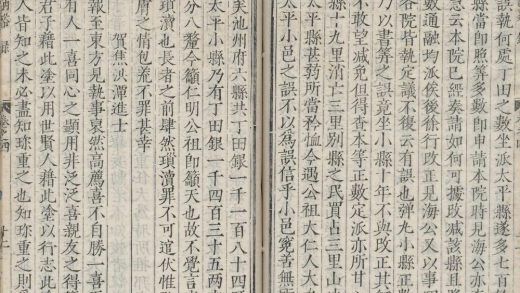 誤執何處丁田之數坐派太平縣遂多七百
縣當即照筭多數即申請本院時見海公亦
意云本院已經奏請如何可擬改减該縣且
數通融均派俟後徐行改正見海公又以事
各院皆執定議不復云有誤也彈丸小縣正
力以書筭之誤竟坐小縣十年不與改正其
不敢望减免但得查本等正數定派亦所甘
縣十九里消亡三里別縣之民買占三里山
太平縣甚所當矜恤今遇公祖大仁人大
太平小邑之誤不以為誤信乎小邑冤苦無
矣池州府六縣共丁田銀一千一百八十四
太平小縣乃有丁田銀一千四百三十五两
分八釐今籲仁明公祖即籲天也故不覺言
瑣瀆也長者之前肆然瑣瀆罪不可逭伏惟
膚之情包羞不罪甚幸
賀焦進士
報至東方見執事裒然高薦喜不自勝一喜
有人一喜同心之顯用非泛泛喜親友之得
君子藉此塗以用世賢人藉此塗以行志此
人皆知之未必盡知珍重之也知珍重之則